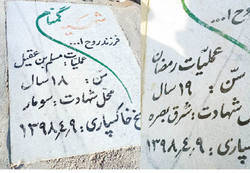 شهید گمنام
فرزند روح ا...
عملیات: مسلم بن عقیل
سن: ۱۸ سال
محل شهادت: سومار
خ خاکسپاری: ۱۳۹۸,۴,۹
عملیات رمضان
سن: ۱۹ سال
شهادت: شرق بصره
خاکسپاری: ۱۳۹۸,۴,۹